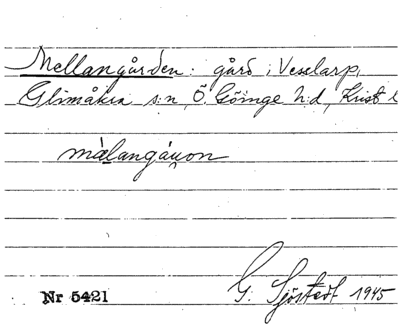 Mellangården: gård i Vesslarp,
Glimåkra s:n, Ö. Göinge h:d, Krist l
G. Sjöstedt 1945
Nr 5421